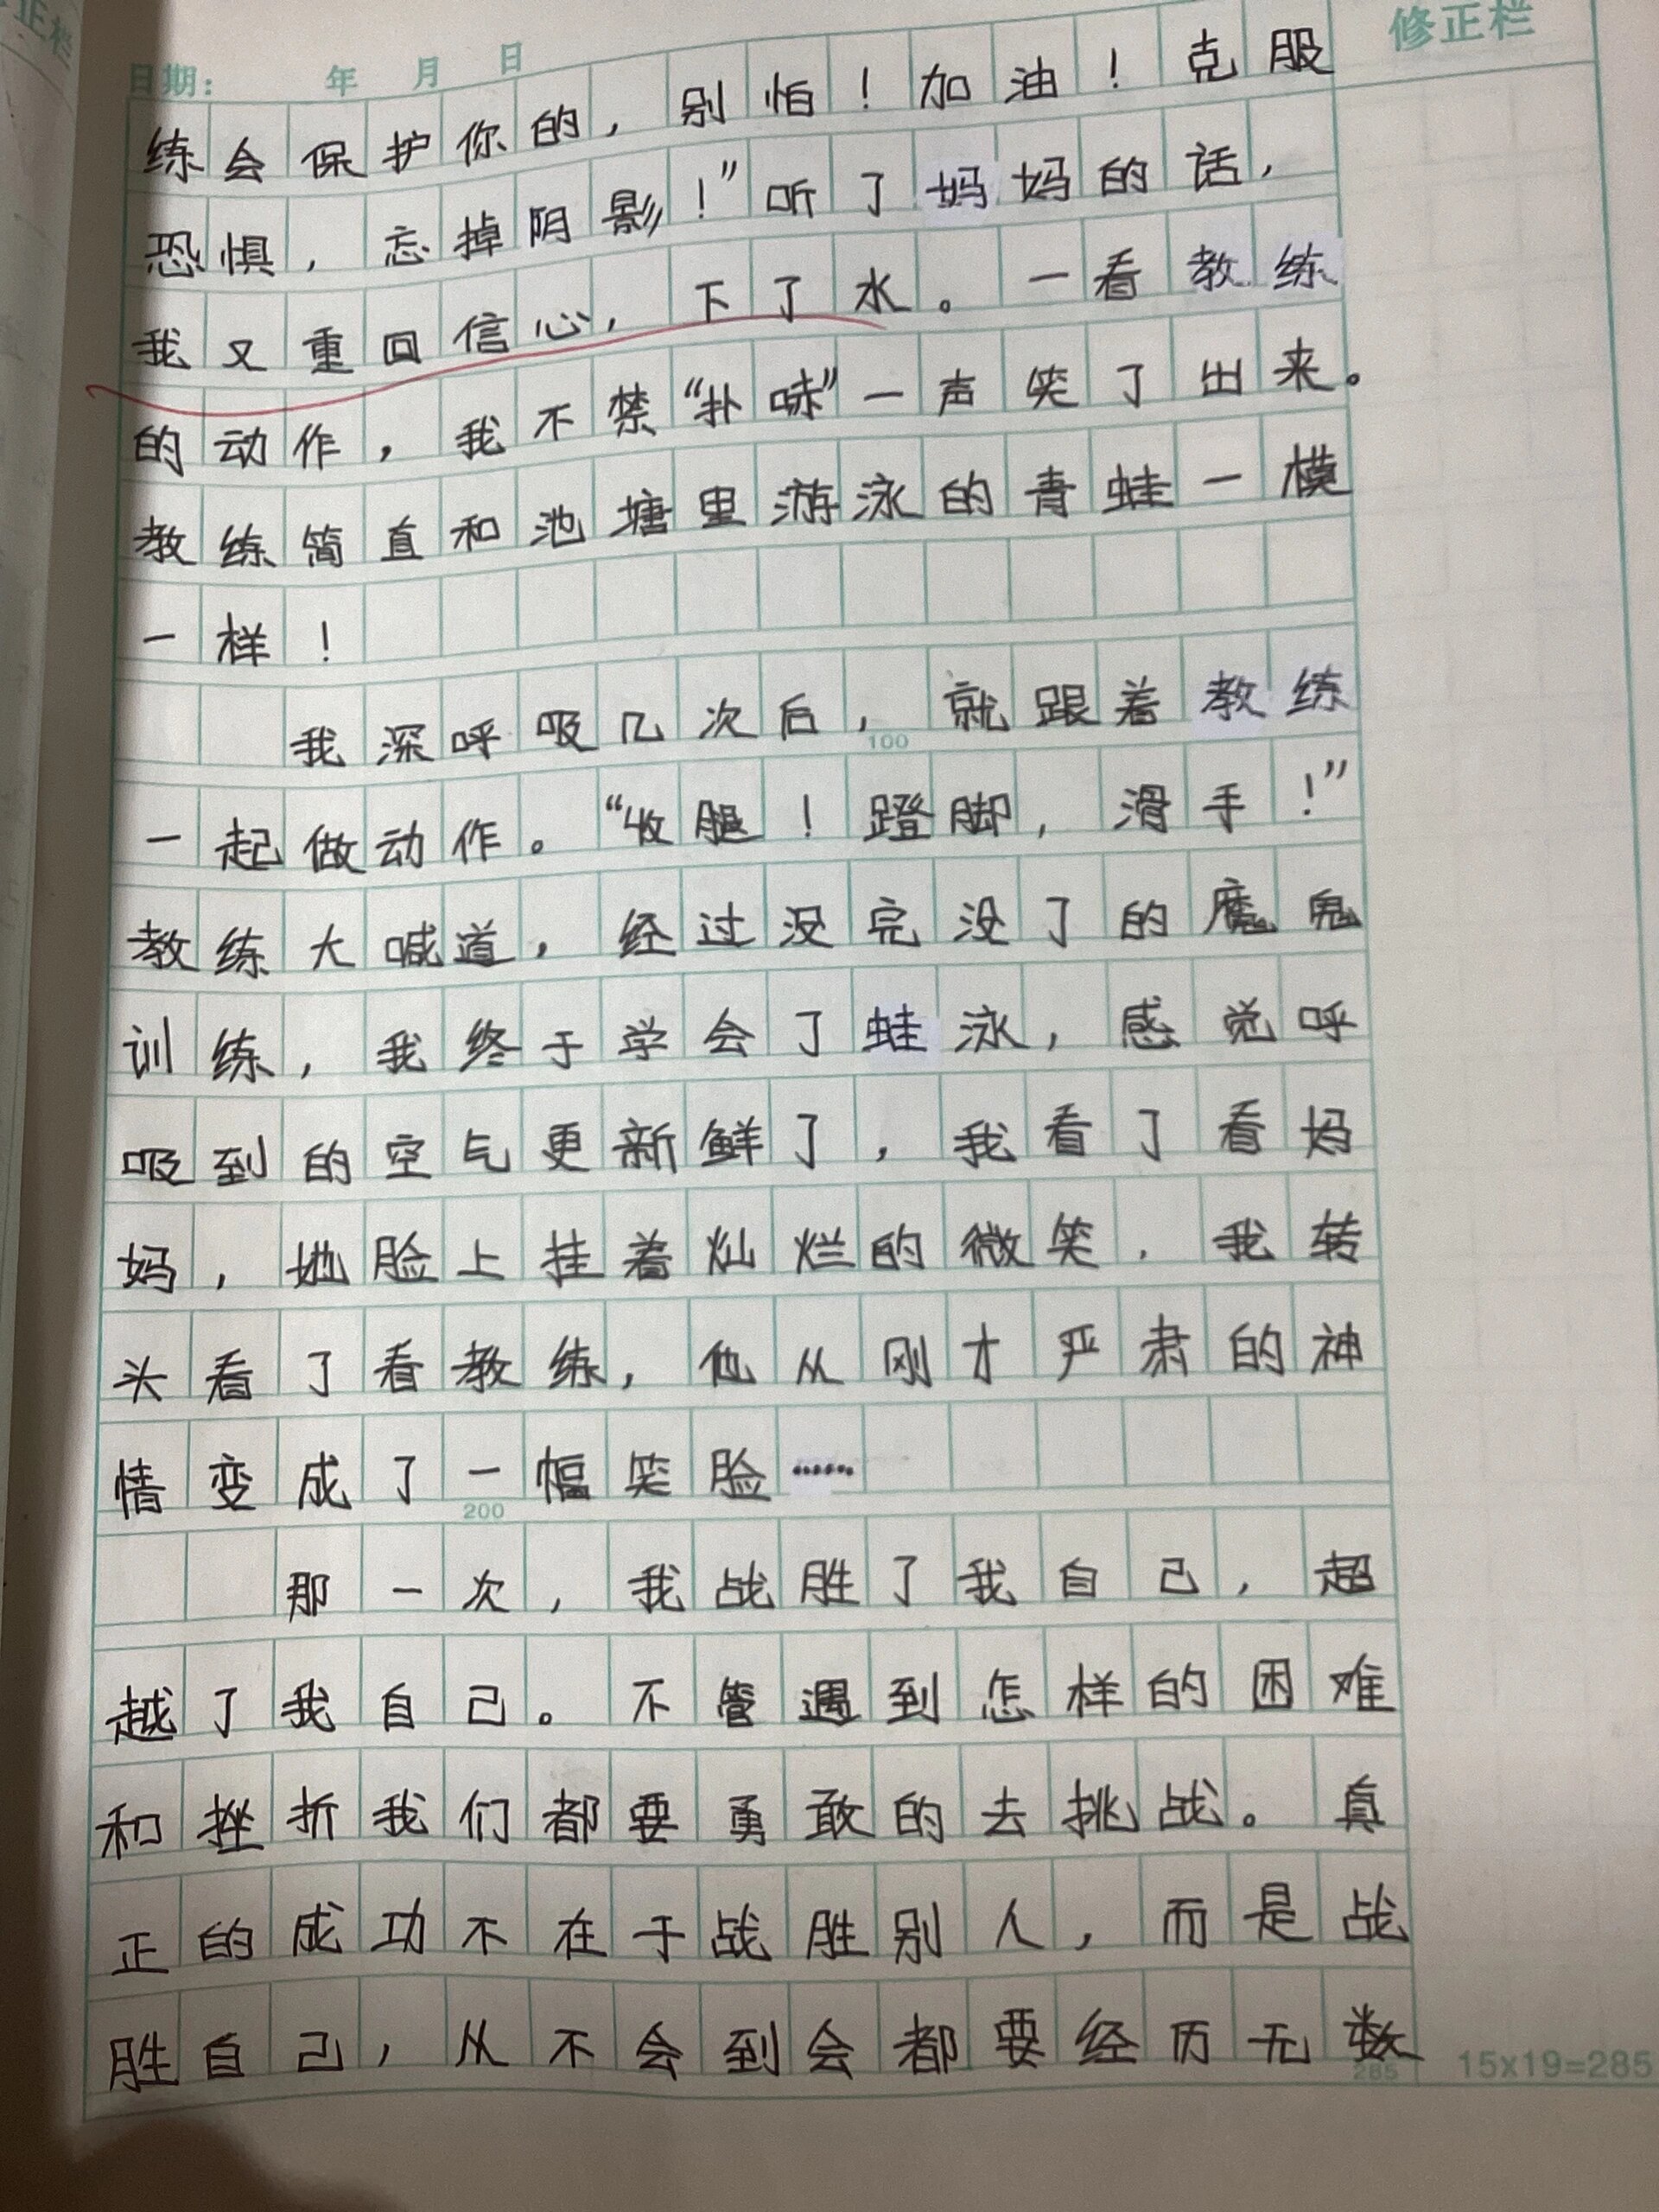 修正栏
日期： 年 月 日
练会保护你的，别怕！加油！克服
恐惧，忘掉阴影！”听了妈妈的话，
我又重回信心，下了水。一看教练
的动作，我不禁“扑哧”一声笑了出来。
教练简直和池塘里游泳的青蛙一模
一样！
我深呼吸几次后，就跟着教练
100
一起做动作。“收腿！蹬脚，滑手！”
教练大喊道，经过没完没了的魔鬼
训练，我终于学会了蛙泳，感觉呼
吸到的空气更新鲜了，我看了看妈
妈，她脸上挂着灿烂的微笑．我转
头看了看教练，他从刚才严肃的神
情变成了一幅笑脸……
200
那一次，我战胜了我自己，超
越了我自己。不管遇到怎样的困难
和挫折我们都要勇敢的去挑战。真
正的成功不在于战胜别人，而是战
胜自己，从不会到会都要经历无数
285
15x19=285